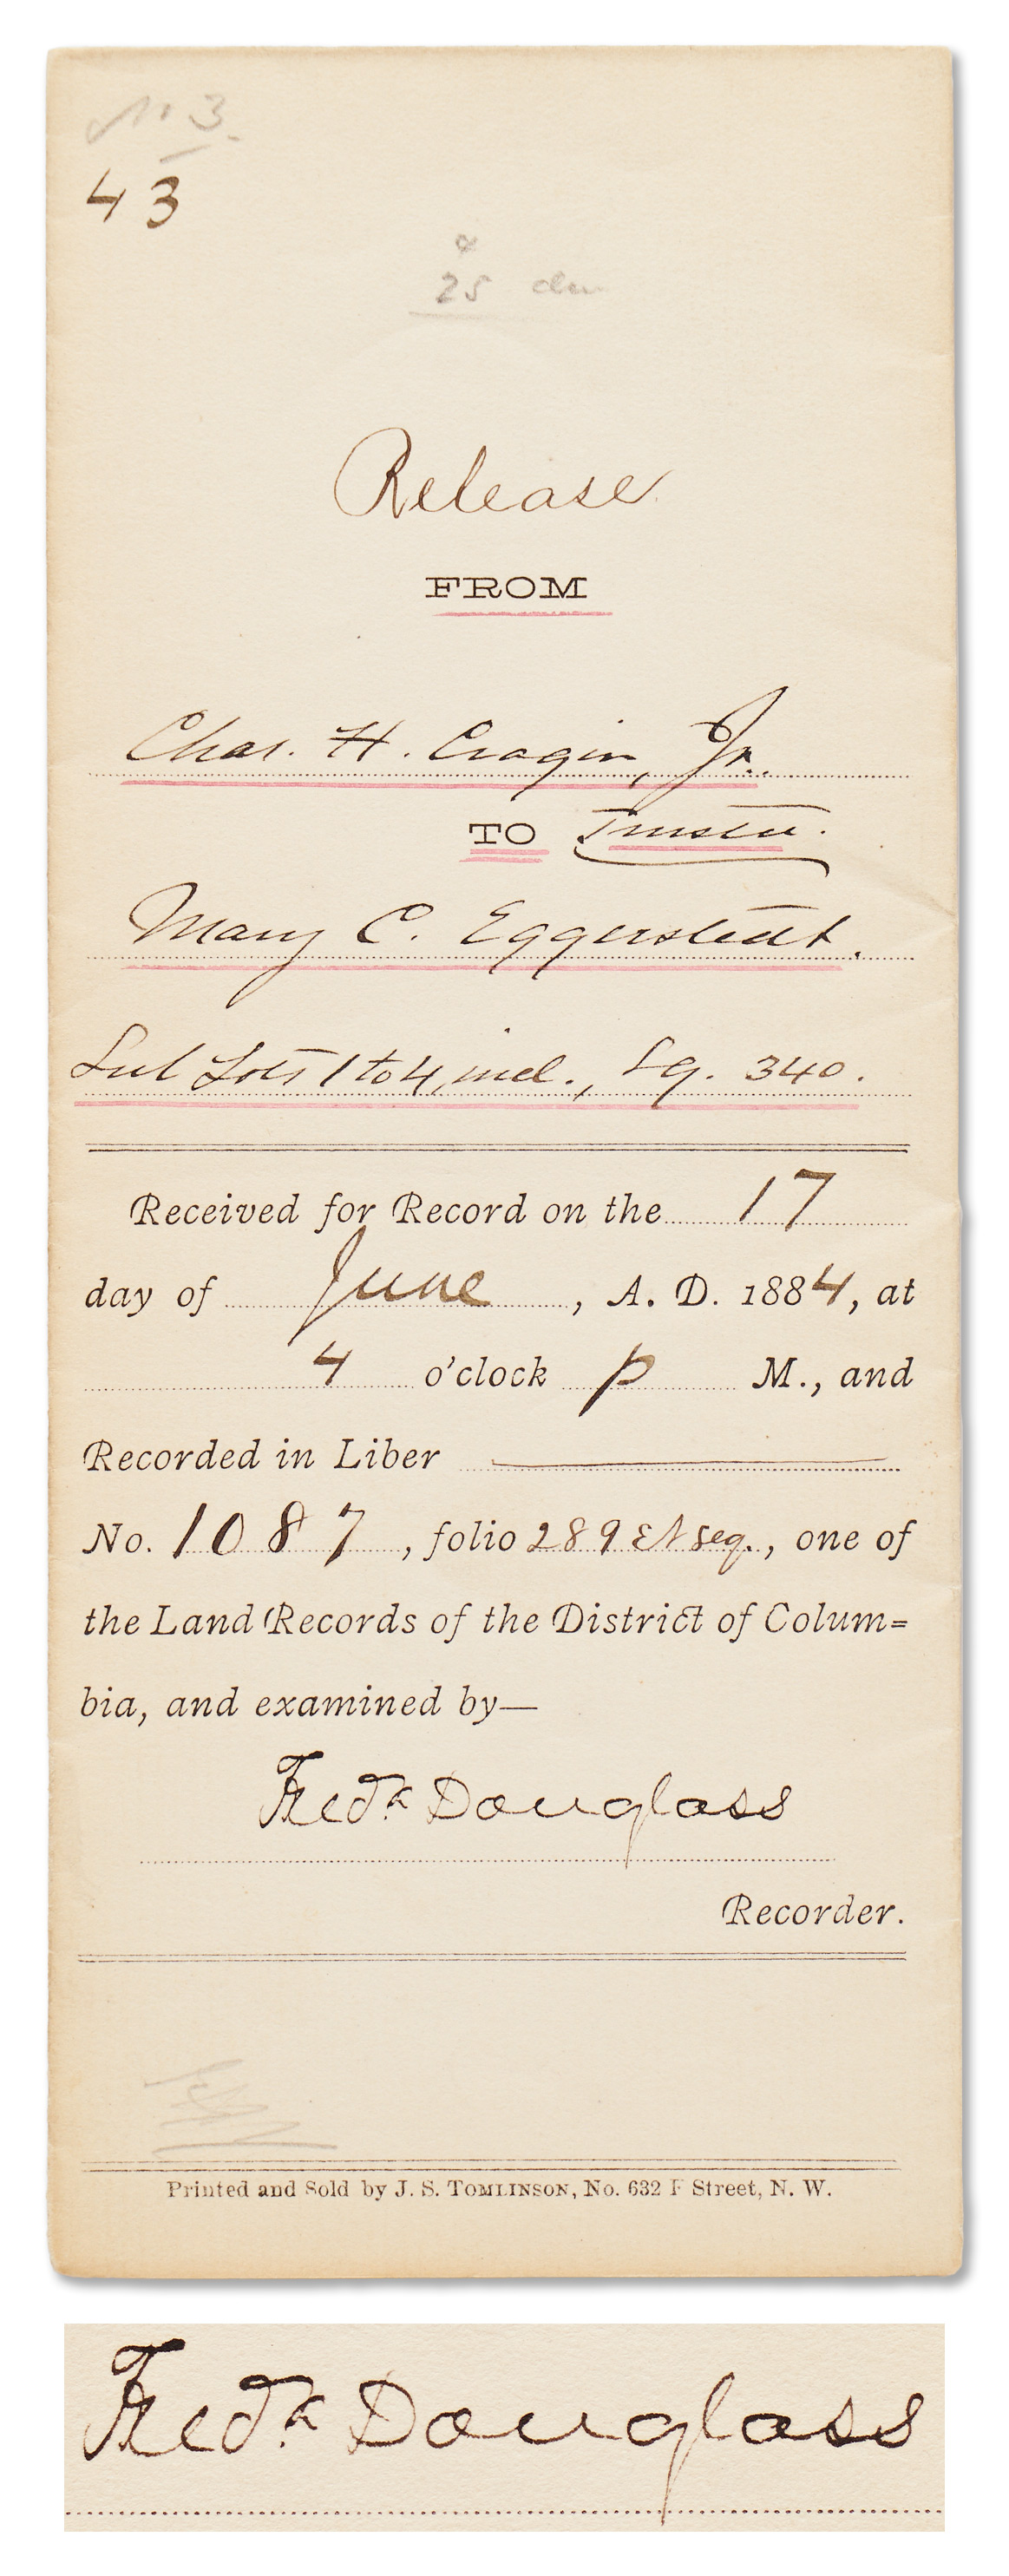 3.
43
25
Release
FROM
Chas. H. Cragin, Jr.
TO Trustee.
Mary C. Eggerstedt.
Sub Lots 1 to 4, incl., Sq. 340.
Received for Record on the 17
day of June, A. D. 1884, at
4 o'clock p M., and
Recorded in Liber
No. 1087, folio 289 et seq., one of
the Land Records of the District of Colum=
bia, and examined by—
Fredk Douglass
Recorder.
Printed and Sold by J. S. TOMLINSON, No. 632 F Street, N. W.
Fredk Douglass